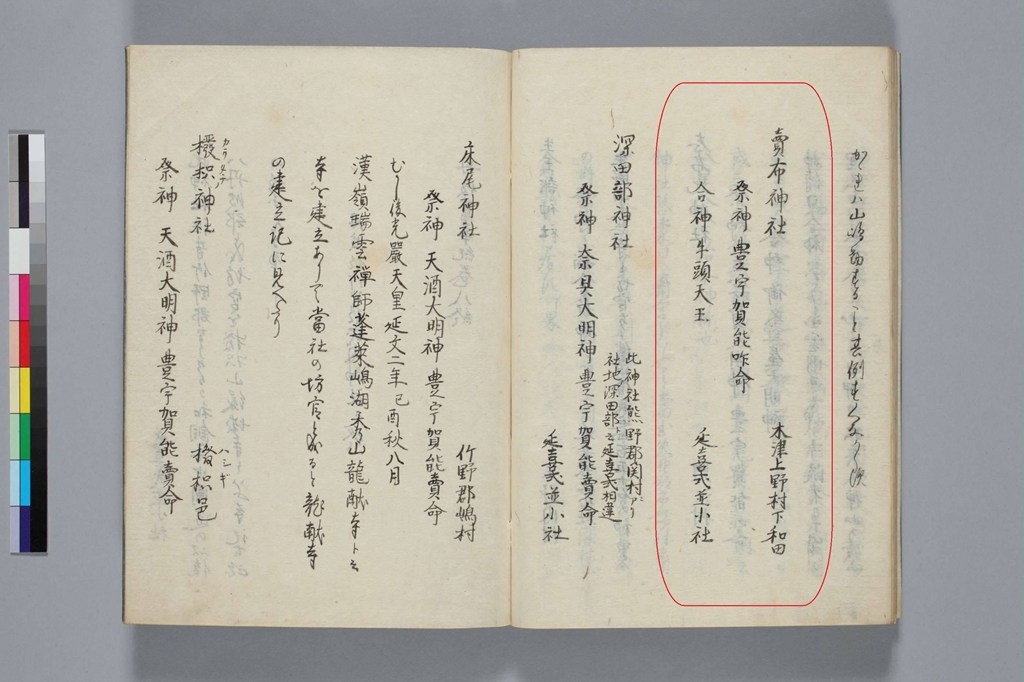 賣布神社 木津上野村下和田
祭神 豊宇賀能咩命
合神牛頭天王 延喜式並小社
深田部神社 此神社熊野郡関村ニアリ
社地深田部ト云延喜式相違
祭神 奈具大明神豊宇賀能賣命
延喜式並小社
床尾神社 竹野郡嶋村
祭神 天酒大明神 豊宇賀能賣命
むかし後光嚴天皇延文二年己酉秋八月
漢嶺瑞雲禅師蓬莱嶋湖秀山龍献寺ト云
寺を建立ありて當社の坊官と龍献寺
の建立記に見へたり
神社 ハシギ 邑
祭神 天酒大明神 豊宇賀能賣命